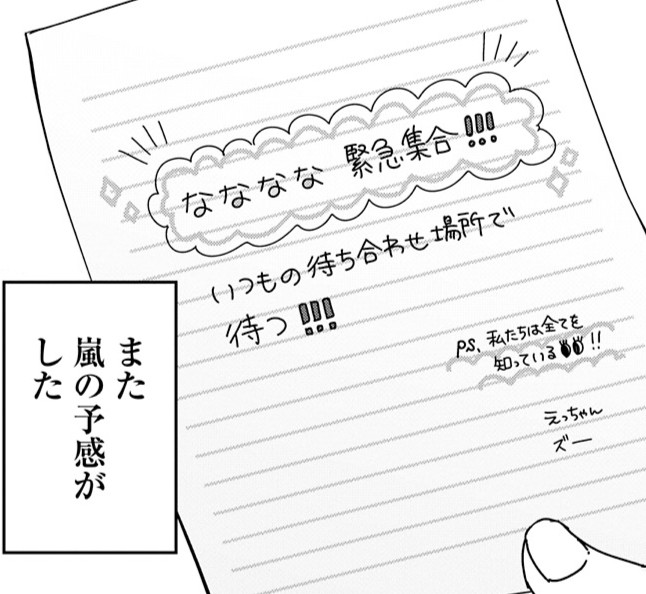 なななな 緊急集合!!!
いつもの待ち合わせ場所で
待つ!!!
P.S. 私たちは全てを
知っている!!
えっちゃん
ズー
また
嵐の予感が
した